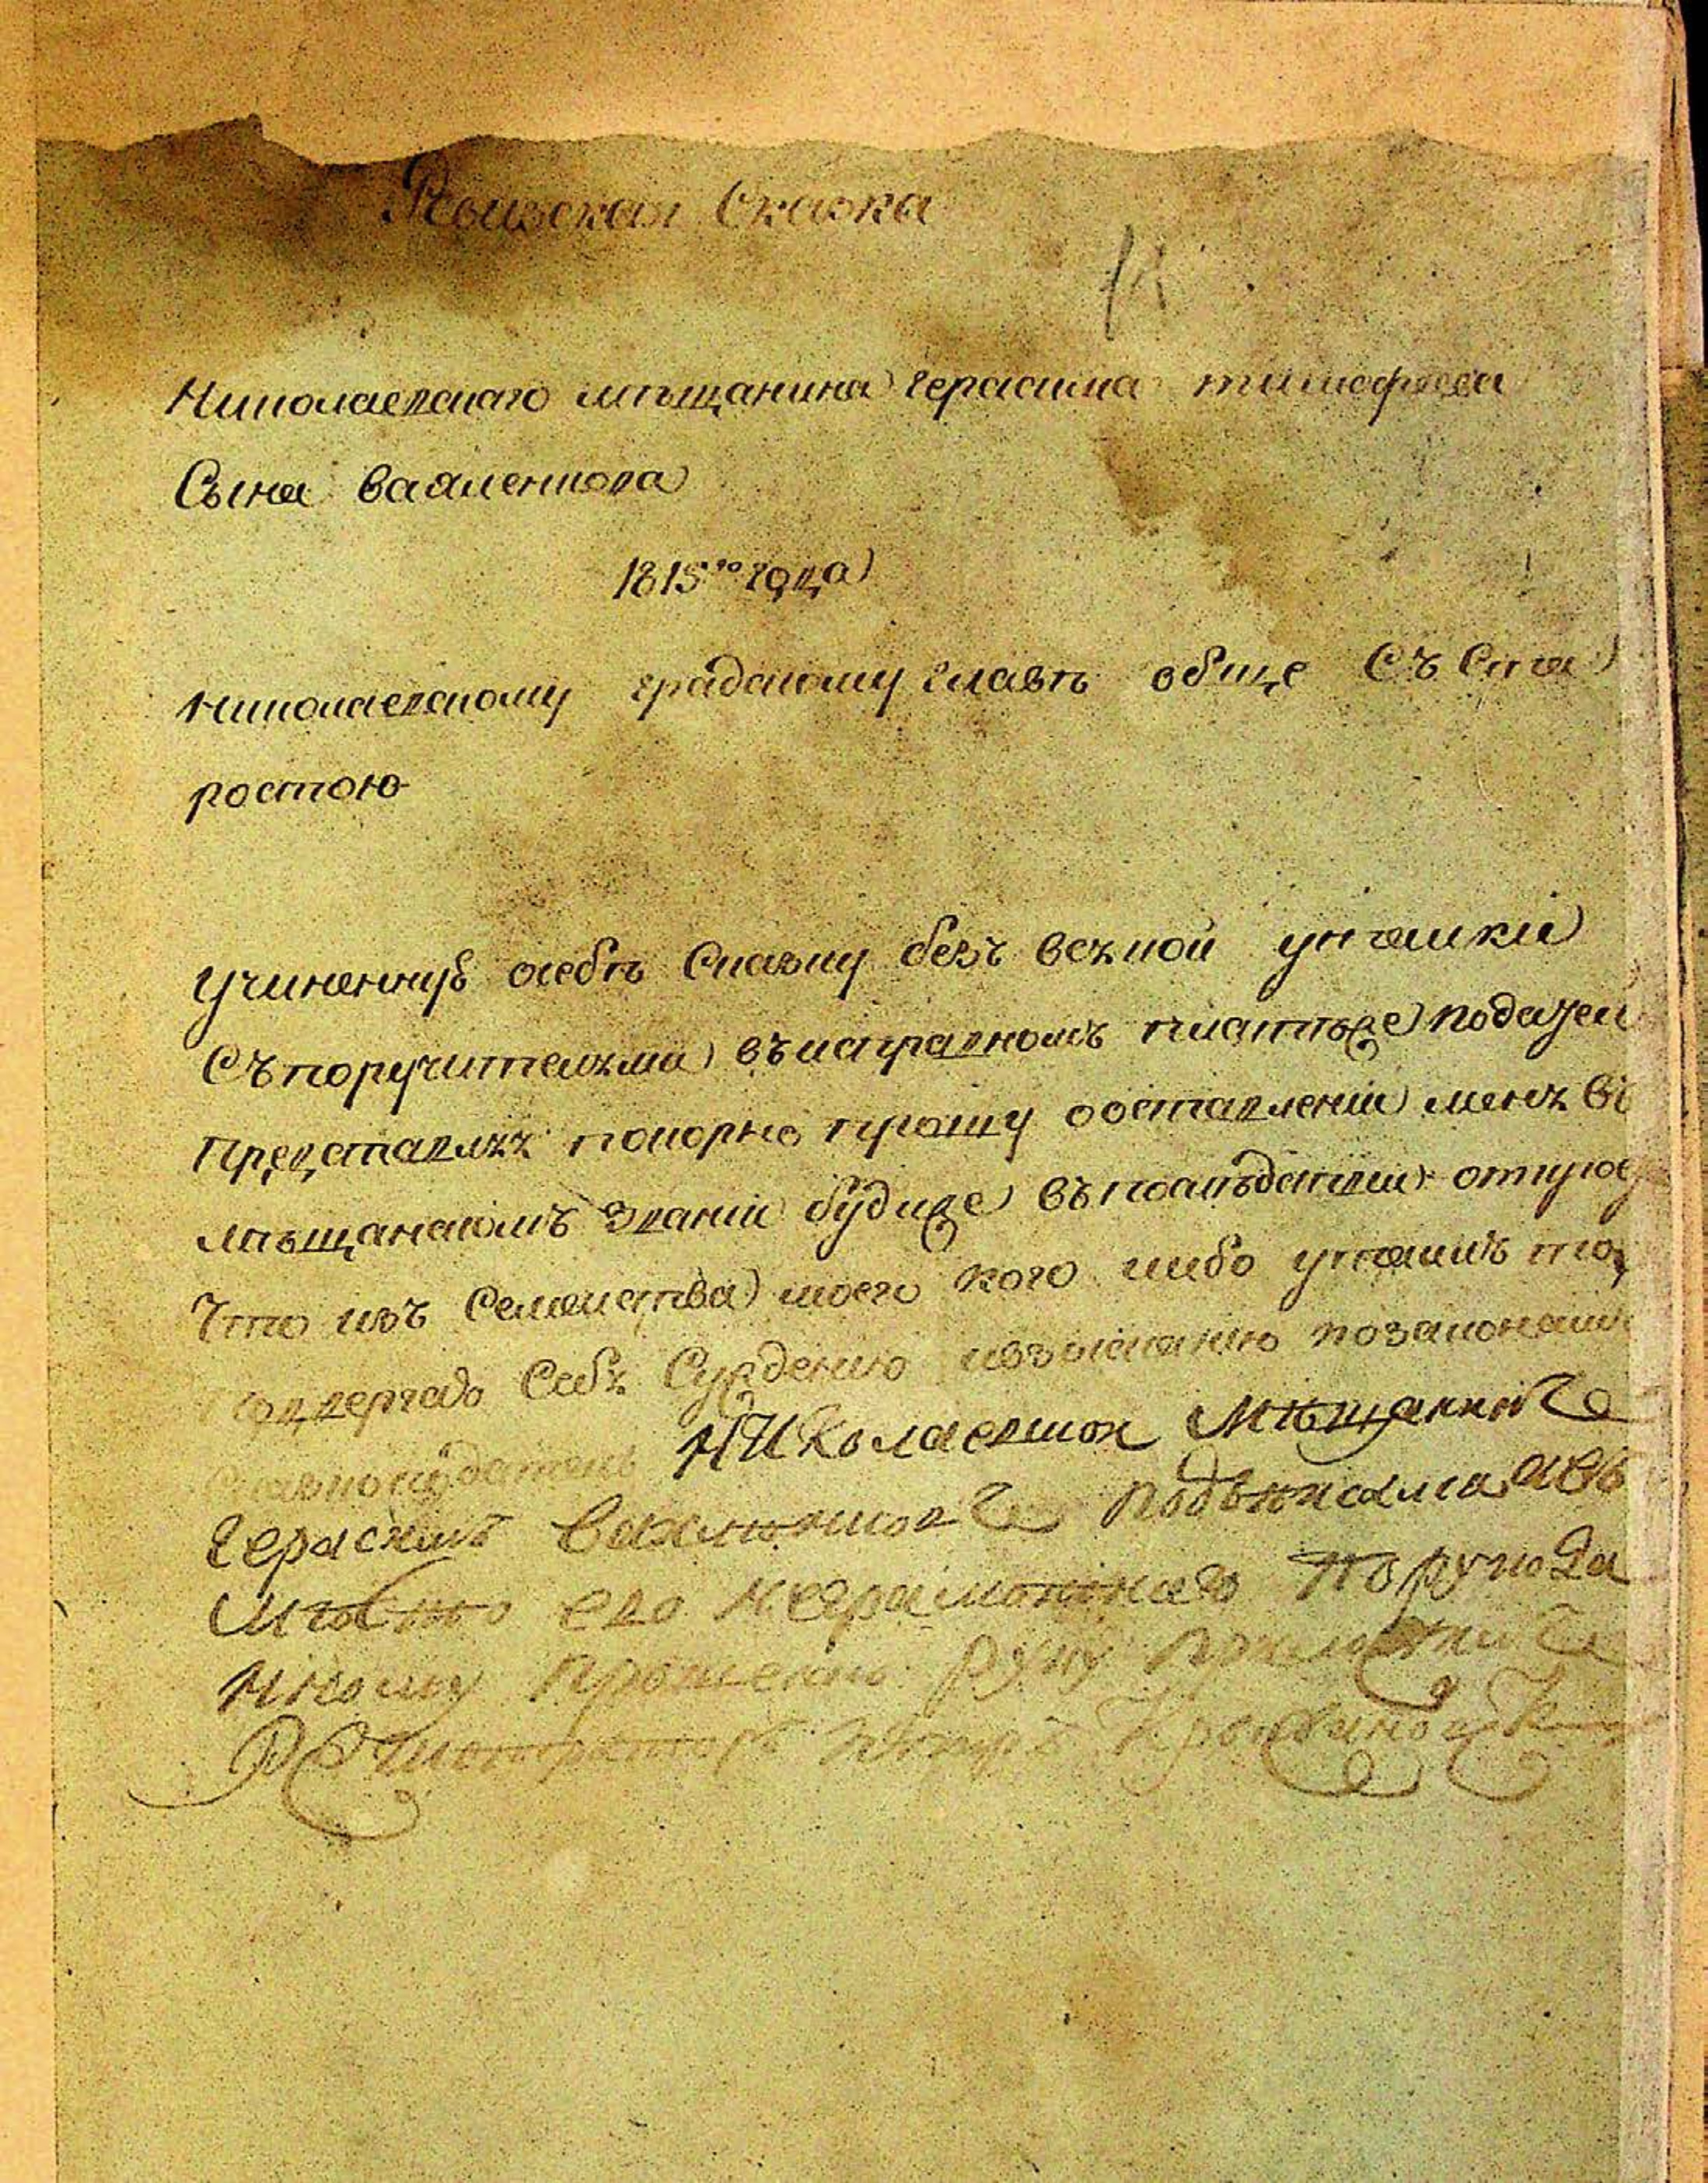 Ревизская Сказка
Николаевскаго мѣщанина Герасима тимофеева
Сына Вахленкова
1815го года
Николаевскому градскому главѣ обще Съ Ста
ростою
Учиненную осебѣ Сказку безъ всякой утайки
Съ поручительма въисправномъ платѣже податей
Представляя покорно прошу обоставленіи меня Въ
мѣщанскомъ Званіи будиже въпослѣдствіи откроется
Что изъ Семейства моего кого либо утаилъ то
подвергаю Себя Суждению повзысканию позаконамъ
Николаевской Мѣщанинъ
Герасимъ Вахленковъ
его неграмотнаго
прошению руку приложилъ